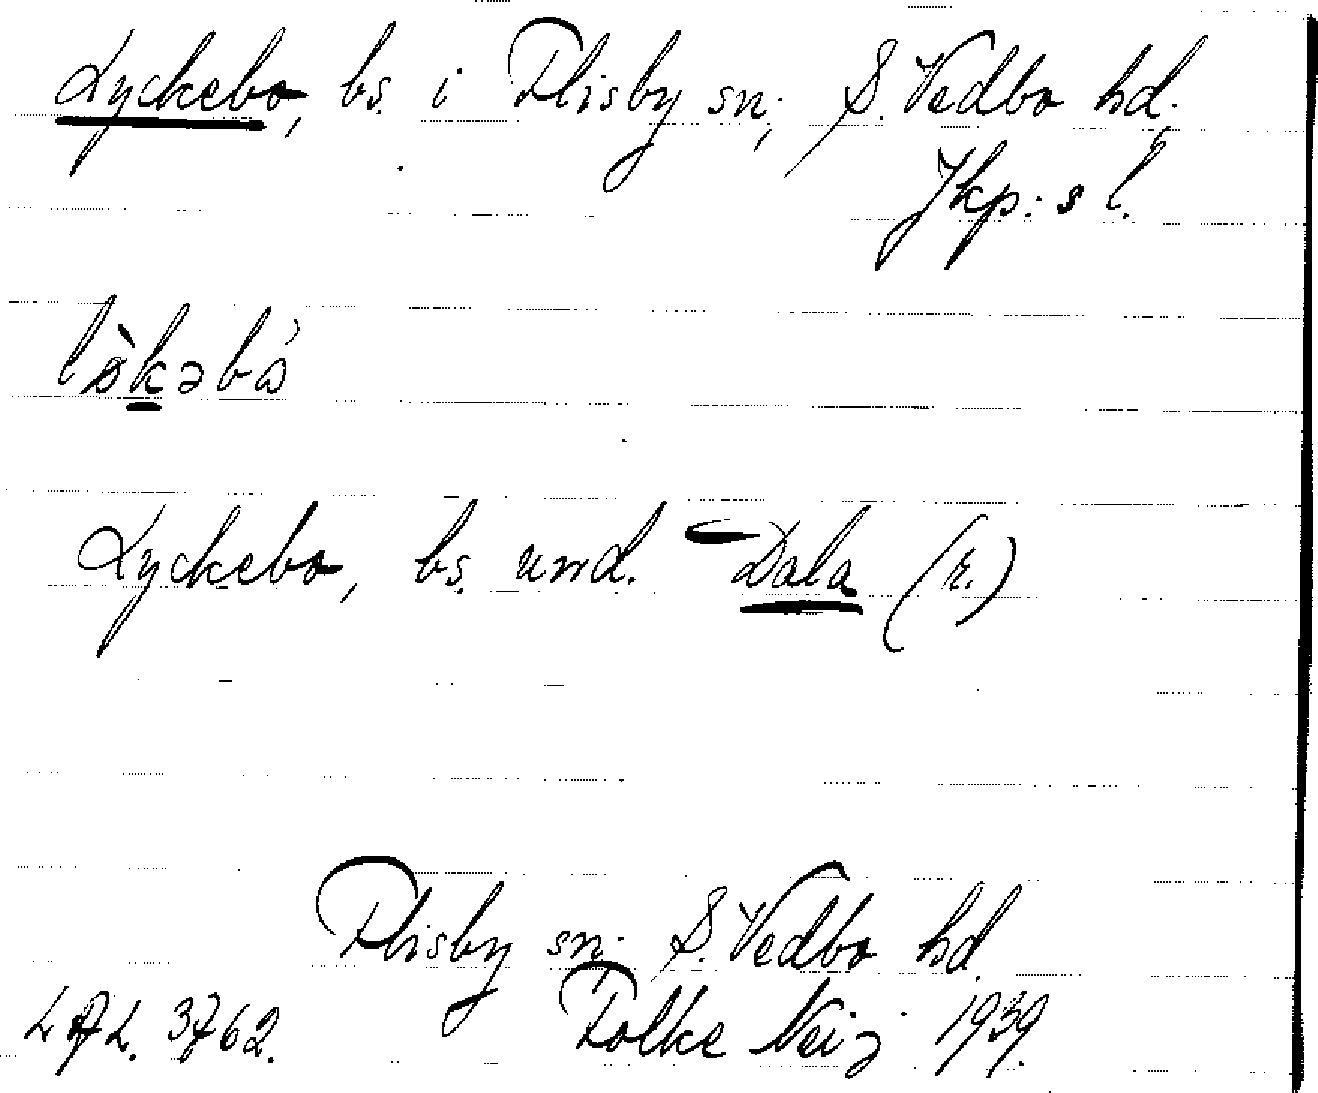 Lyckebo, bs. i Flisby sn, S. Vedbo hd.
Jkp:s l.
Lyckebo, bs. und. Dala (E.)
Flisby sn, S. Vedbo hd.
LAL. 3762. Folke Neij 1939.